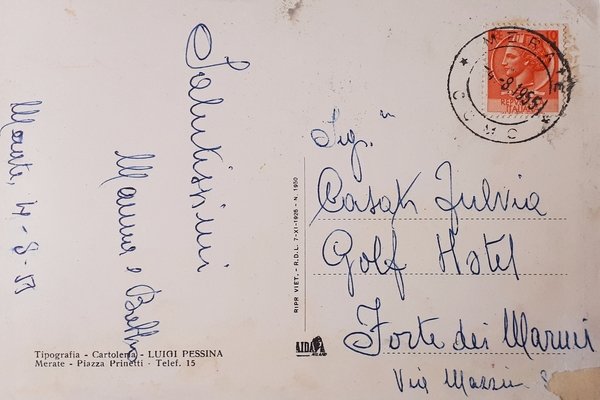 Salutissimi
Mamma e
Merate, 4-8-55
Tipografia - Cartoleria - LUIGI PESSINA
Merate - Piazza Prinetti - Telef. 15
RIPR. VIET. - R.D.L. 7-XI-1925 - N. 1950
AIDA
MERATE
4-8-1955
COMO
REP
ITALI
Sig.na
Casati Fulvia
Golf Hotel
Forte dei Marmi
Via